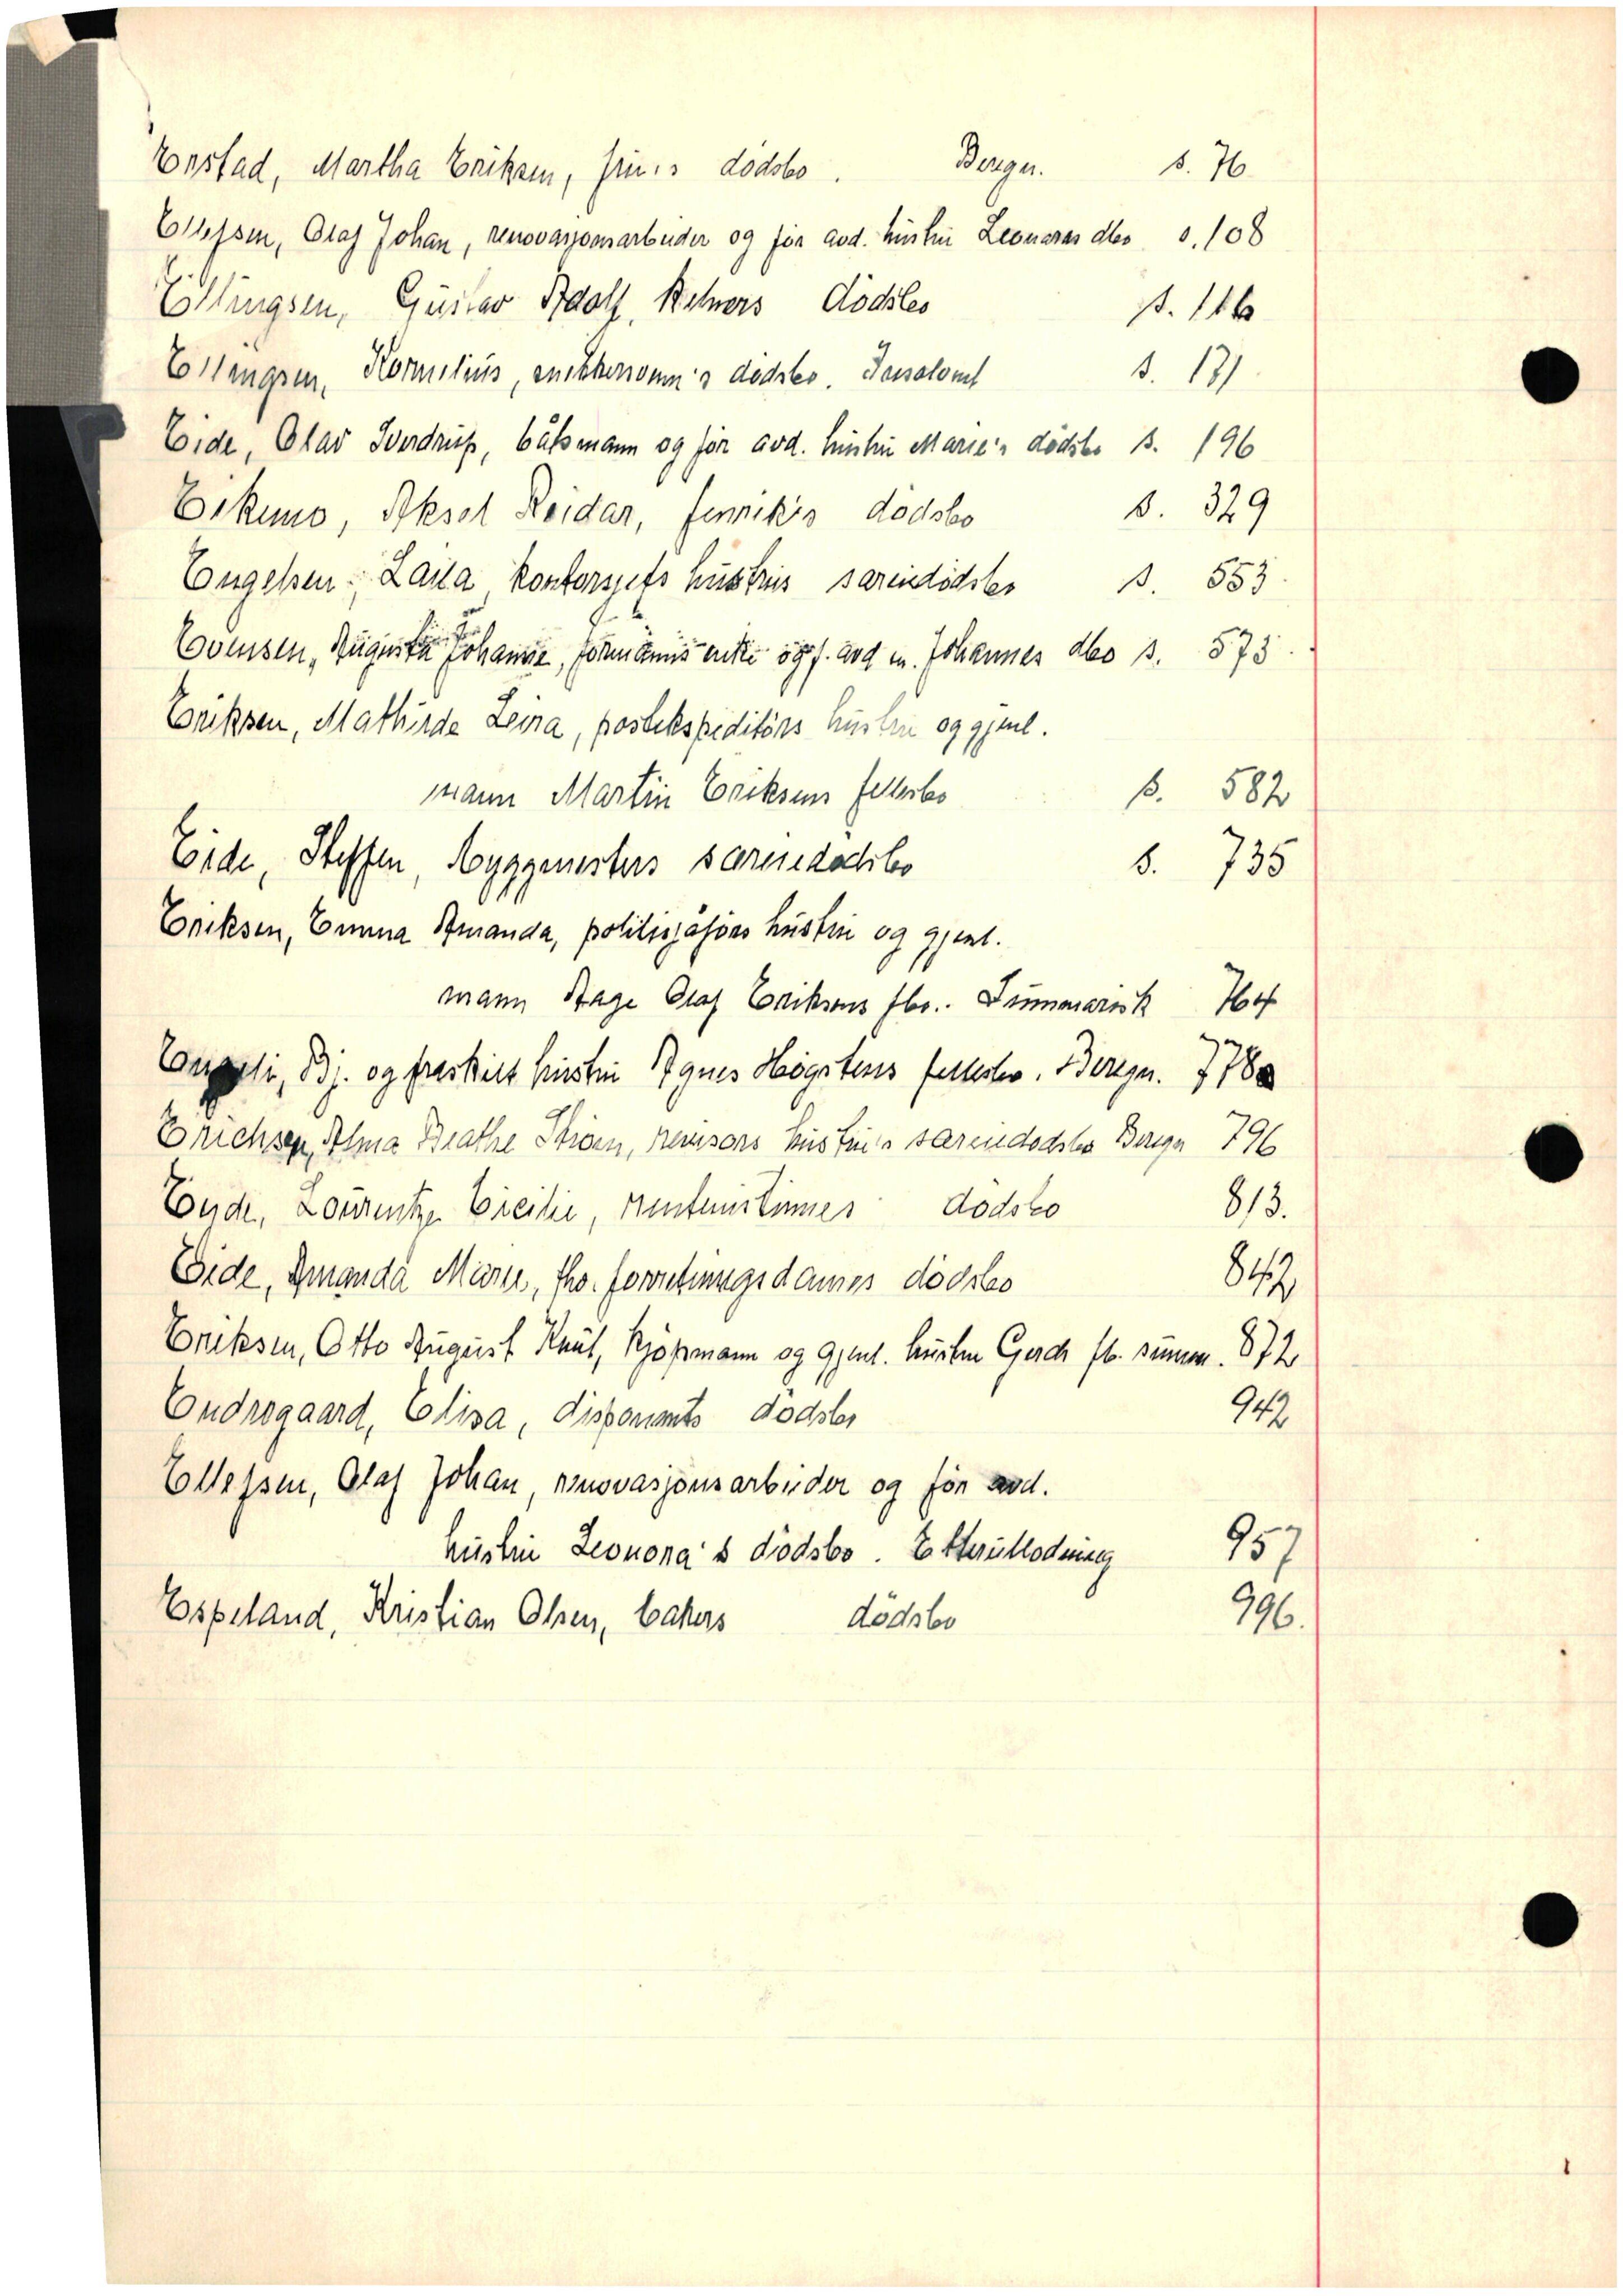 Enstad, Martha Eriksen, frü's dödsbo. Beregn. s. 76
Ellefsen, Olaf Johan, renovasjonsarbeider og för avd. hüstrü Leonoras dbo s. 108
Ellingsen, Güstav Adolf, Kelners dödsbo s. 116
Ellingsen, Kornelius, dödsbo. s. 131
Eide, Olav Sverdrüp, båtsmann og för avd. hüstrü Marie's dödsbo s. 196
Eikemo, Aksel Reidar, fenriks dödsbo s. 329
Engelsen, Laila kontorsjefs hüstrüs særeiedödsbo s. 553
Evensen, Augusta Johanne, formanns enke og f. avd m. Johannes dbo s. 573
Eriksen, Mathilde Leina, postekspeditörs hüstrü og gjenl.
mann Martin Eriksens fellesbo s. 582
Eide, Steffen, byggmesters særeiedödsbo s. 735
Eriksen, Emma Amanda, politisjåförs hüstrü og gjenl.
mann Aage Olaf Eriksens fbo. Sümmarisk 764
Bj. og fraskilt hüstrü Agnes Högstens fellesbo. Beregn. 778
Erichsen, Alma Beathe revisors hüstrü's særeiedödsbo Beregn 796
Eide, Laurentze Cicilie, rentenistinnes dödsbo 813.
Eide, Amanda Marie, fhv. forretningsdames dödsbo 842
Eriksen, Otto August Knüt, kjöpmann og gjenl. hüstrü Gerda fb. summ. 872
Endregaard, Elisa, disponents dödsbo 942
Ellefsen, Olaf Johan, renovasjonsarbeider og för avd.
hüstrü Leonora's dödsbo. Etterütlodning 957
Espeland, Kristian Olsen, bakers dödsbo 996.